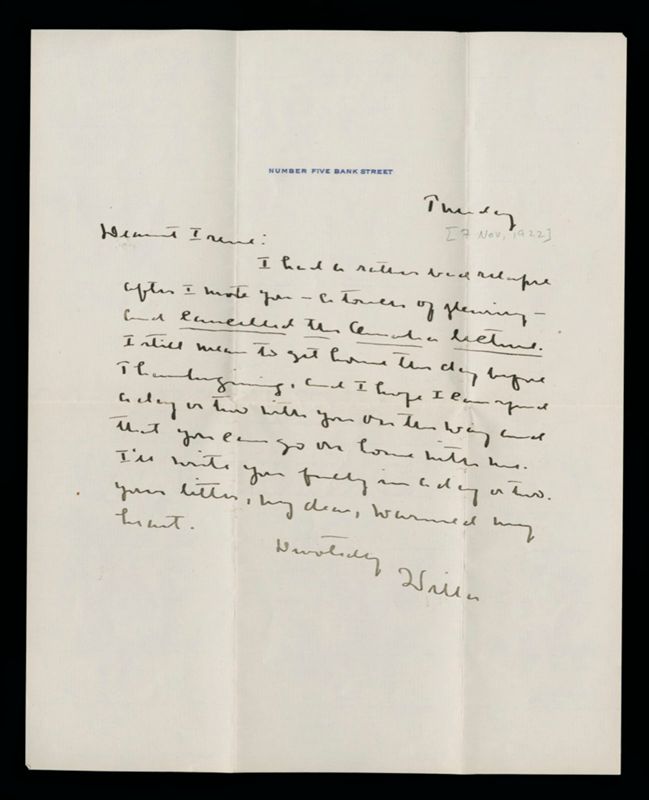 NUMBER FIVE BANK STREET
Tuesday
[7 Nov, 1922]
Dearest Irene:
I had a rather bad relapse
after I wrote you — a touch of pleurisy —
and cancelled the Omaha lecture.
I still mean to get home the day before
Thanksgiving, and I hope I can spend
a day or two with you on the way and
that you can go on home with me.
I'll write you fully in a day or two.
Your letter, my dear, warmed my
heart.
Devotedly
Willa